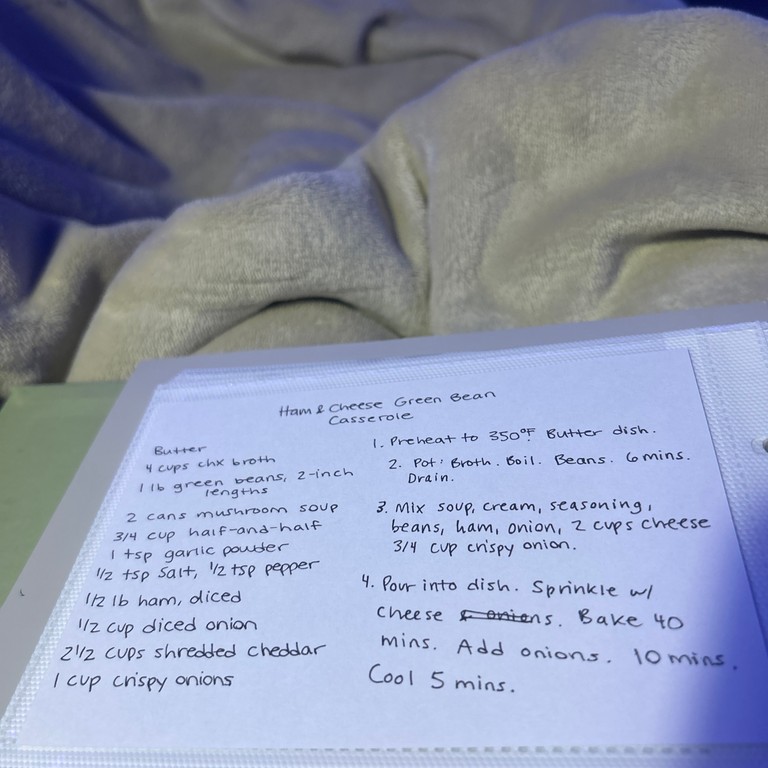 Ham & Cheese Green Bean
Casserole
Butter
4 cups chx broth
1 lb green beans, 2-inch
lengths
2 cans mushroom soup
3/4 cup half-and-half
1 tsp garlic powder
1/2 tsp salt, 1/2 tsp pepper
1/2 lb ham, diced
1/2 cup diced onion
2 1/2 cups shredded cheddar
1 cup crispy onions
1. Preheat to 350°F. Butter dish.
2. Pot: Broth. Boil. Beans. 6 mins.
Drain.
3. Mix soup, cream, seasoning,
beans, ham, onion, 2 cups cheese
3/4 cup crispy onion.
4. Pour into dish. Sprinkle w/
cheese & onions. Bake 40
mins. Add onions. 10 mins.
Cool 5 mins.